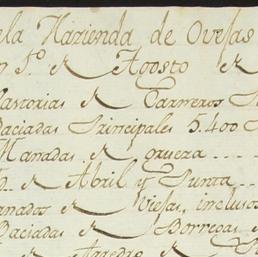 ela Hazienda de Ovejas
1º de Agosto de
Pastorias de Carneros
Baciadas Principales 5.400
Manadas de grueza
de Abril y Junta
anados de Viejas, inclusos
Baciadas de Borregas
de